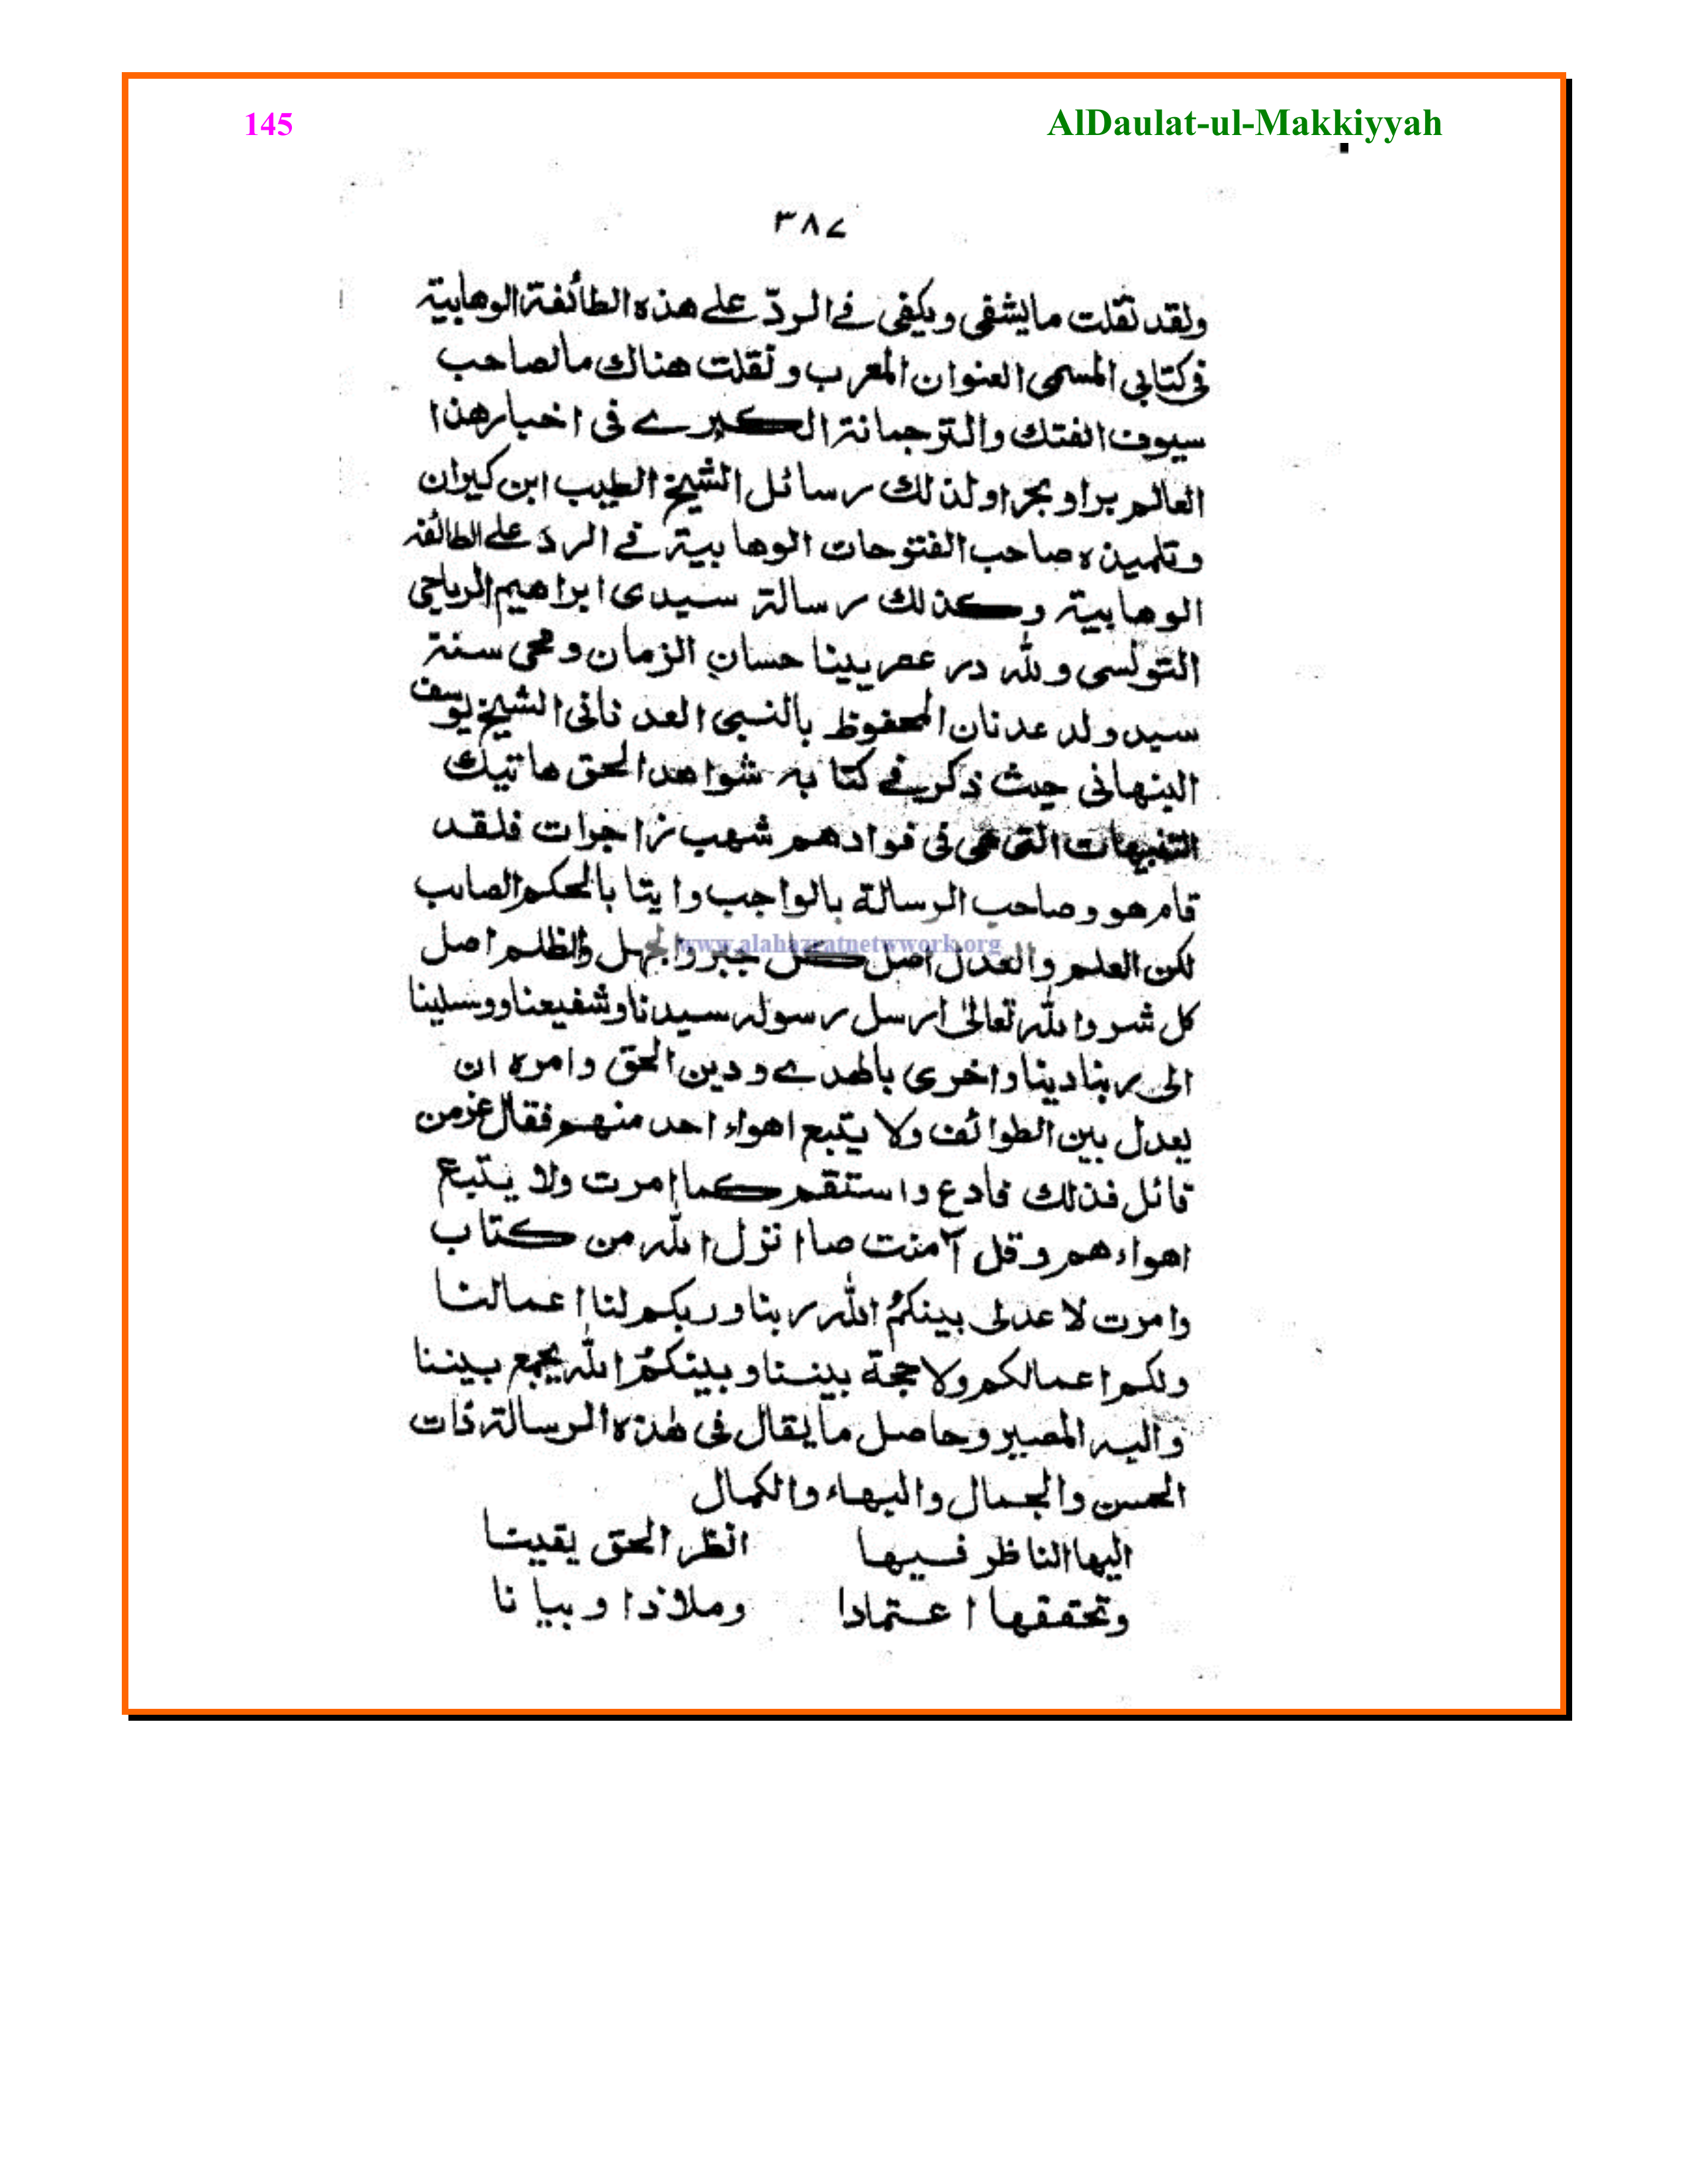 145 AlDaulat-ul-Makkiyyah
٣٨٧
ولقد نقلت مايشفى ويكفى فے الردّ علے هذه الطائفة الوهابية
فى كتابى المسمى العنوان المعرب ونقلت هناك مالصاحب
سيوف الفتك والترجمانة الكبرے فى اخبار هذا
العالم برا وبحرا ولذلك رسائل الشيخ الطيب ابن كيران
وتلميذه صاحب الفتوحات الوهابية فے الرد علے الطائفة
الوهابية وكذلك رسالة سيدى ابراهيم الرياحى
التونسى ولله در عصريينا حسان الزمان ومحى سنة
سيد ولد عدنان المحفوظ بالنبى العدنانى الشيخ يوسف
النبهانى حيث ذكر فے كتابه شواهد الحق هاتيك
التنبيهات التى هى فى فوادهم شهب زاجرات فلقد
قام هو وصاحب الرسالة بالواجب وايتا بالحكم الصائب
لكن العلم والعدل اصل كل خير والجهل والظلم اصل
www.alahazratnetwork.org
كل شر والله تعالىٰ ارسل رسوله سيدنا وشفيعنا ووسلينا
الى ربنا دينا واخرى بالهدے ودين الحق وامره ان
يعدل بين الطوائف ولا يتبع اهواء احد منهم فقال عز من
قائل فذلك فادع واستقم كما امرت ولا يتبع
اهواءهم وقل آمنت صا انزل الله من كتاب
وامرت لاعدلى بينكم الله ربنا وربكم لنا اعمالنا
ولكم اعمالكم ولا حجة بيننا وبينكم الله يجمع بيننا
واليه المصير وحاصل ما يقال فى هٰذه الرسالة ذات
الحسن والجمال والبهاء والكمال
اليها الناظر فيها انظر الحق يقينا
وتحققها اعتمادا وملاذا وبيانا